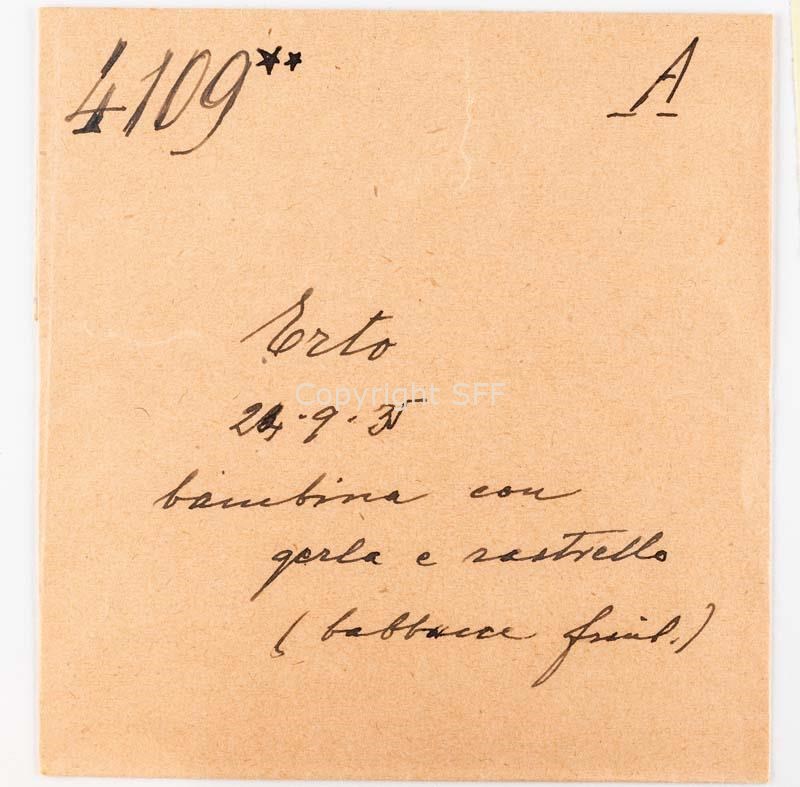 4109** A
Erto
Copyright SFF
24·9·35
bambina con
gerla e rastrello
(babbucce friul.)